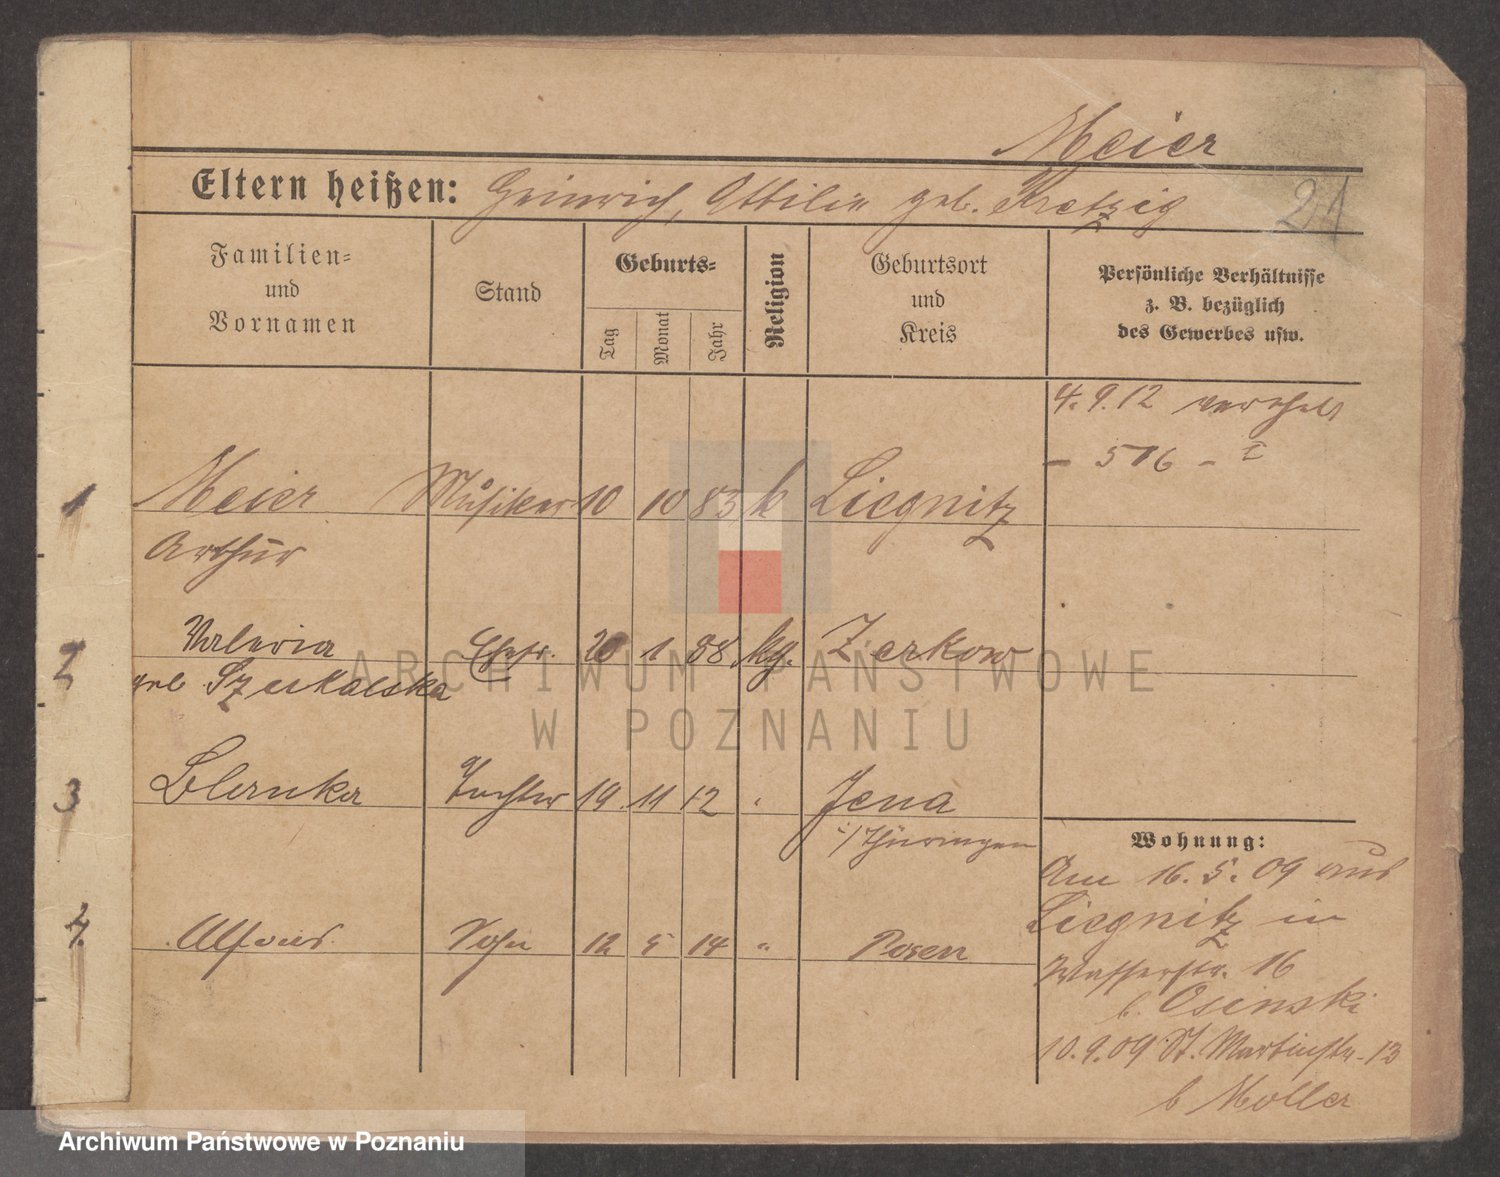 Meier
Eltern heißen: Heinrich, Ottilie geb. Kretzig
21
Familien=
und
Vornamen
Stand
Geburts=
Tag
Monat
Jahr
Religion
Geburtsort
und
Kreis
Persönliche Verhältnisse
z. B. bezüglich
des Gewerbes usw.
4. 9. 12
- 516 - I
1 Meier Musiker 10 10 83 k Liegnitz
Arthur
2 Valeria Ehefr. 20 1 88 kg. Zerkow
geb
3 Tochter 19. 11 12 " Jena
i/Thüringen
4. Alfons Sohn 12 5 14 " Posen
Wohnung:
Am 16. 5. 09 aus
Liegnitz in
Wasserstr. 16
b. Osinski
10. 9. 09 St. Martinstr. 13
b Moller
ARCHIWUM PAŃSTWOWE
W POZNANIU
Archiwum Państwowe w Poznaniu